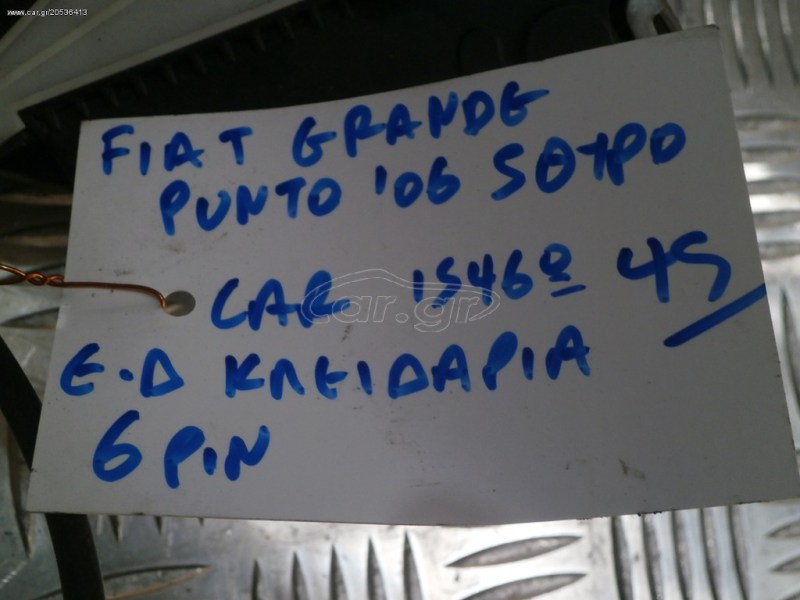 www.car.gr/20536413
FIAT GRANDE
PUNTO '06 5ΘΥΡΟ
CAR 1546º 45
car.gr
Ε.Δ ΚΛΕΙΔΑΡΙΑ
6 PIN